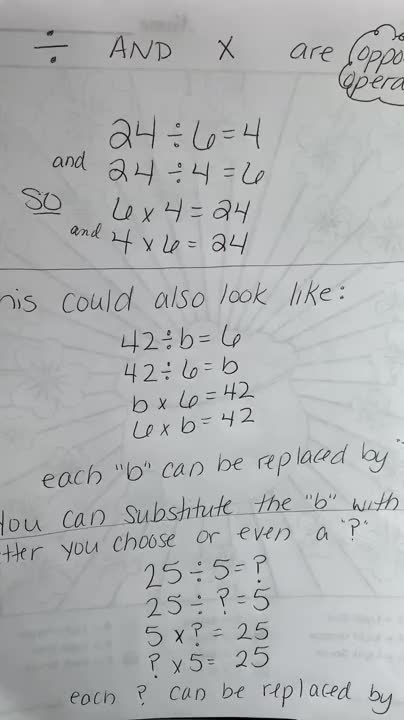 ÷ AND X are
24 ÷ 6 = 4
and 24 ÷ 4 = 6
SO 6 x 4 = 24
and 4 x 6 = 24
could also look like:
42 ÷ b = 6
42 ÷ 6 = b
b x 6 = 42
6 x b = 42
each "b" can be replaced by
You can substitute the "b" with
you choose or even a "?"
25 ÷ 5 = ?
25 ÷ ? = 5
5 x ? = 25
? x 5 = 25
each ? can be replaced by